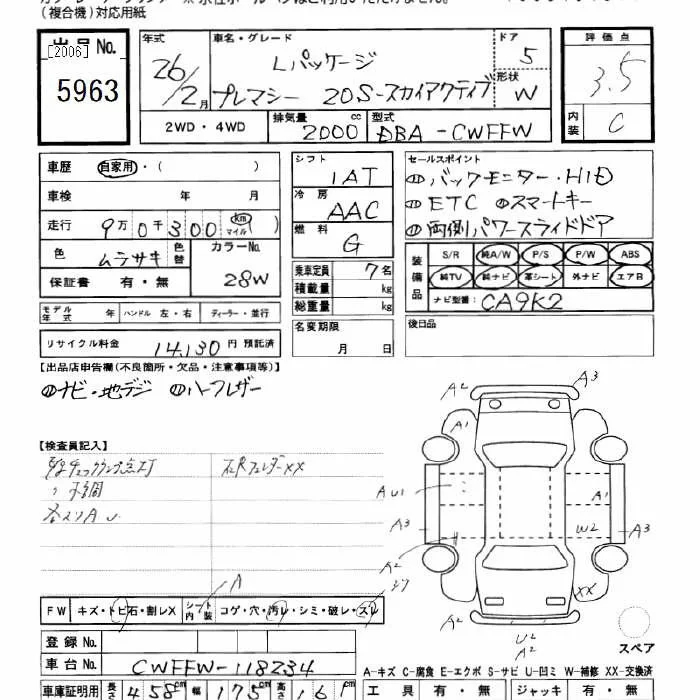 (複合機)対応用紙
出品No.
[2006]
5963
年式 26/2月
車名・グレード Lパッケージ
プレマシー 20S-スカイアクティブ
ドア 5
形状 W
2WD・4WD
排気量 2000 cc
型式 DBA-CWFFW
評価点 3.5
内装 C
車歴 自家用・( )
車検 年 月
走行 9万0千300 km マイル ( )
色 ムラサキ 色替
カラーNo. 28W
保証書 有・無
モデル年式 年 ハンドル 左・右 ディーラー・並行
リサイクル料金 14,130 円 預託済
シフト IAT
冷房 AAC
燃料 G
乗車定員 7名
積載量 kg
総重量 kg
名変期限 月 日
セールスポイント
バックモニター・HID
ETC スマートキー
両側パワースライドドア
装備品
S/R 純A/W P/S P/W ABS
純TV 純ナビ 革シート 外ナビ エアB
ナビ型番: CA9K2
後日品
【出品店申告欄(不良箇所・欠品・注意事項等)】
ナビ・地デジ ハーフレザー
【検査員記入】
XX
FW キズ・トビ石・割レX シート内装 コゲ・穴・汚レ・シミ・破レ・スレ
A
登録No.
車台No. CWFFW-118234
車庫証明用 長さ 458cm 幅 175cm 高さ 161
A2
A3
A1
AU1
A1
A3
W2
A3
A2
XX
A2
U2
A2
スペア
A-キズ C-腐食 E-エクボ S-サビ U-凹ミ W-補修 XX-交換済
工具 有・無 ジャッキ 有・無